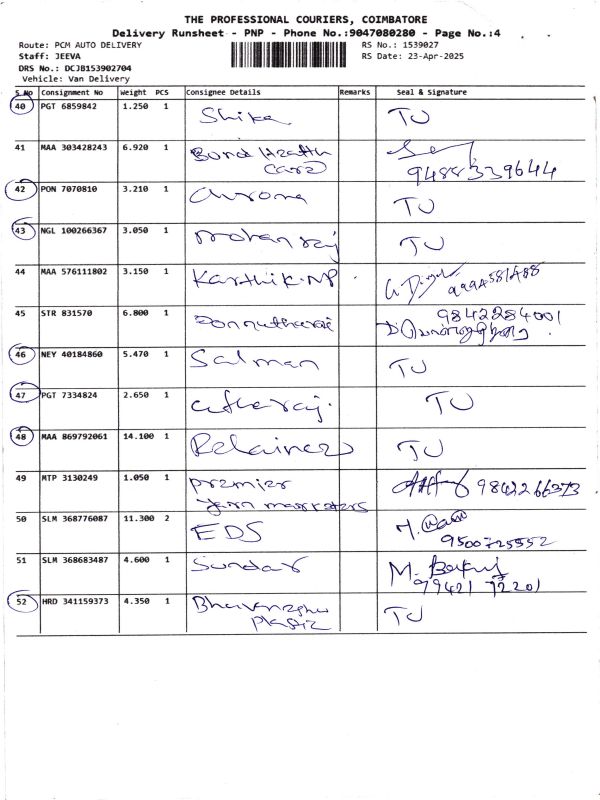 THE PROFESSIONAL COURIERS, COIMBATORE
Delivery Runsheet - PNP - Phone No.:9047080280 - Page No.:4
Route: PCM AUTO DELIVERY RS No.: 1539027
Staff: JEEVA RS Date: 23-Apr-2025
DRS No.: DCJB153902704
Vehicle: Van Delivery
S No Consignment No Weight PCS Consignee Details Remarks Seal & Signature
40 PGT 6859842 1.250 1 Shika TU
41 MAA 303428243 6.920 1 Health
Care 9488339644
42 PON 7070810 3.210 1 TU
43 NGL 100266367 3.050 1 Mohan raj TU
44 MAA 576111802 3.150 1 Karthik.NP
45 STR 831570 6.800 1 9842284001
46 NEY 40184860 5.470 1 Salman TU
47 PGT 7334824 2.650 1 TU
48 MAA 869792061 14.100 1 TU
49 MTP 3130249 1.050 1 Premier 9842266373
yarn marketers
50 SLM 368776087 11.300 2 EDS
9500725552
51 SLM 368683487 4.600 1 Sundar M.
79421 72201
52 HRD 341159373 4.350 1 TU
Plastic